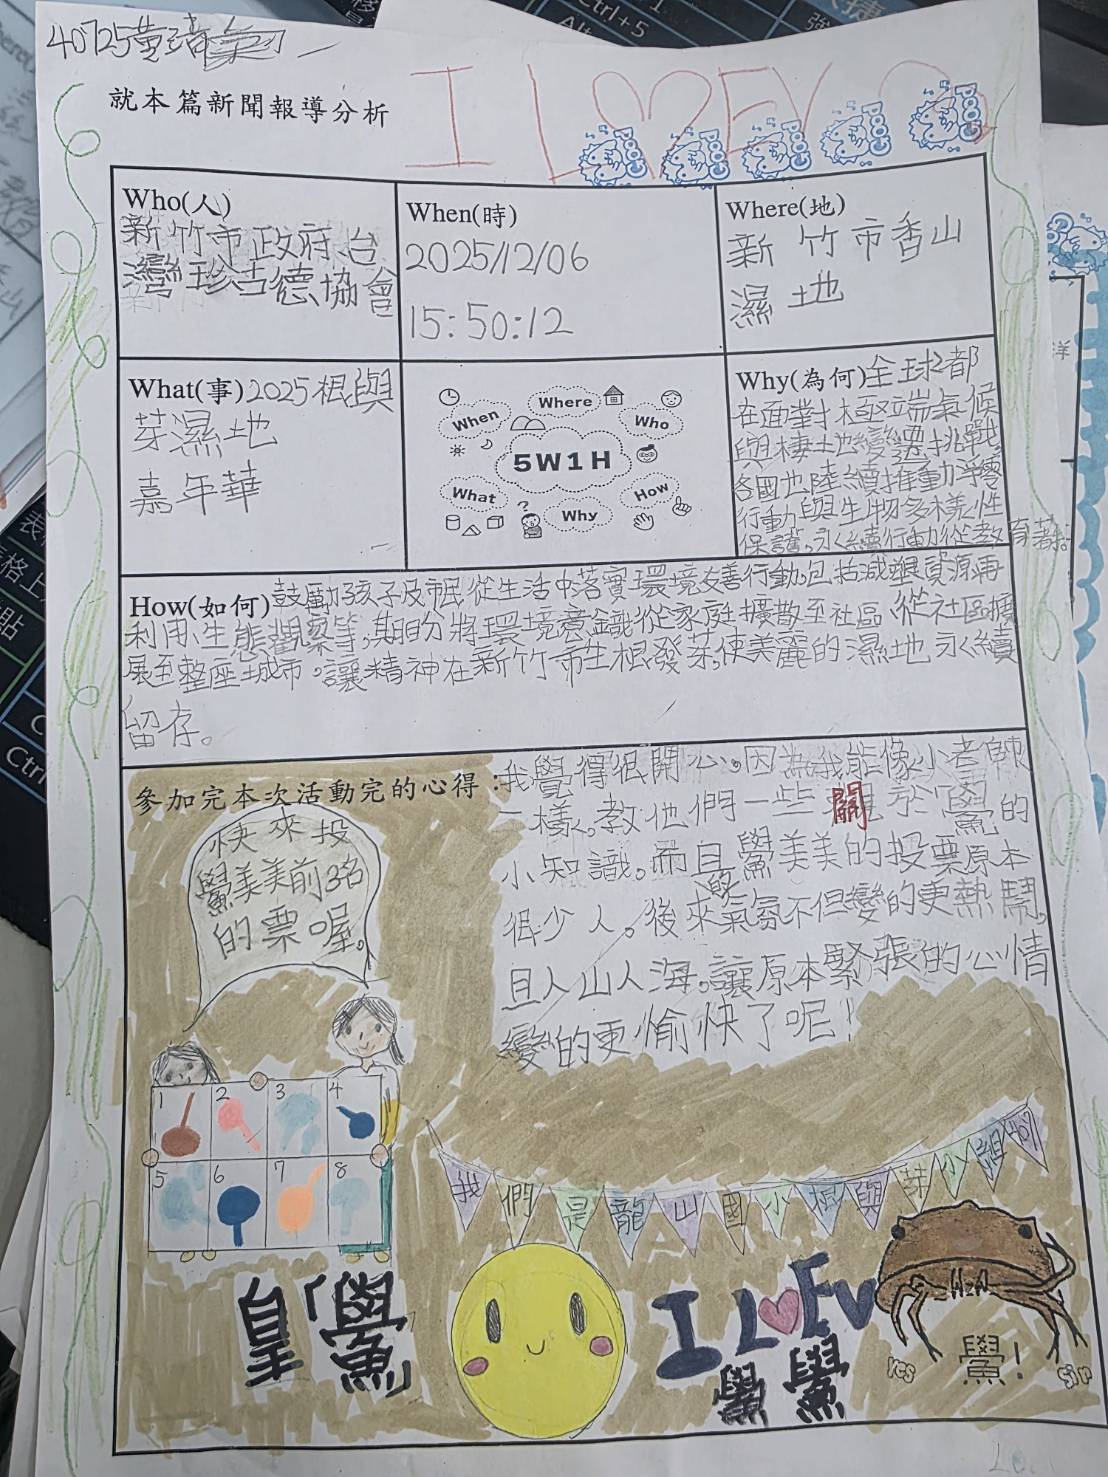 40725黃
就本篇新聞報導分析
I L♡EV
GOOD
GOOD
GOOD
GOOD
GOOD
Who(人)
新竹市政府台
灣珍古德協會
When(時)
2025/12/06
15:50:12
Where(地)
新竹市香山
濕地
What(事)2025根與
芽濕地
嘉年華
Where
When
Who
5W1H
What
How
?
Why
Why(為何)全球都
在面對極端氣候
與棲土地變遷挑戰。
各國也陸續推動淨零
行動與生物多樣性
保護。永續行動從教育著
How(如何)鼓勵孩子及市民從生活中落實環境友善行動。包括減塑、資源再
利用、生態觀察等,期盼將環境意識從家庭擴散至社區、從社區擴
展至整座城市。讓精神在新竹市生根發芽。使美麗的濕地永續
留存。
參加完本次活動完的心得:我覺得很開心。因為我能像小老師
一樣。教他們一些關於鱟的
小知識。而且鱟美美的投票原本
很少人。後來氣氛不但變的更熱鬧。
且人山人海。讓原本緊張的心情
變的更愉快了呢!
快來投
鱟美美前3名
的票喔。
1 2 3 4
5 6 7 8
我們是龍山國小根與芽小組407
皇「鱟」
I L♡EV
鱟鱟
yes
鱟!
sir